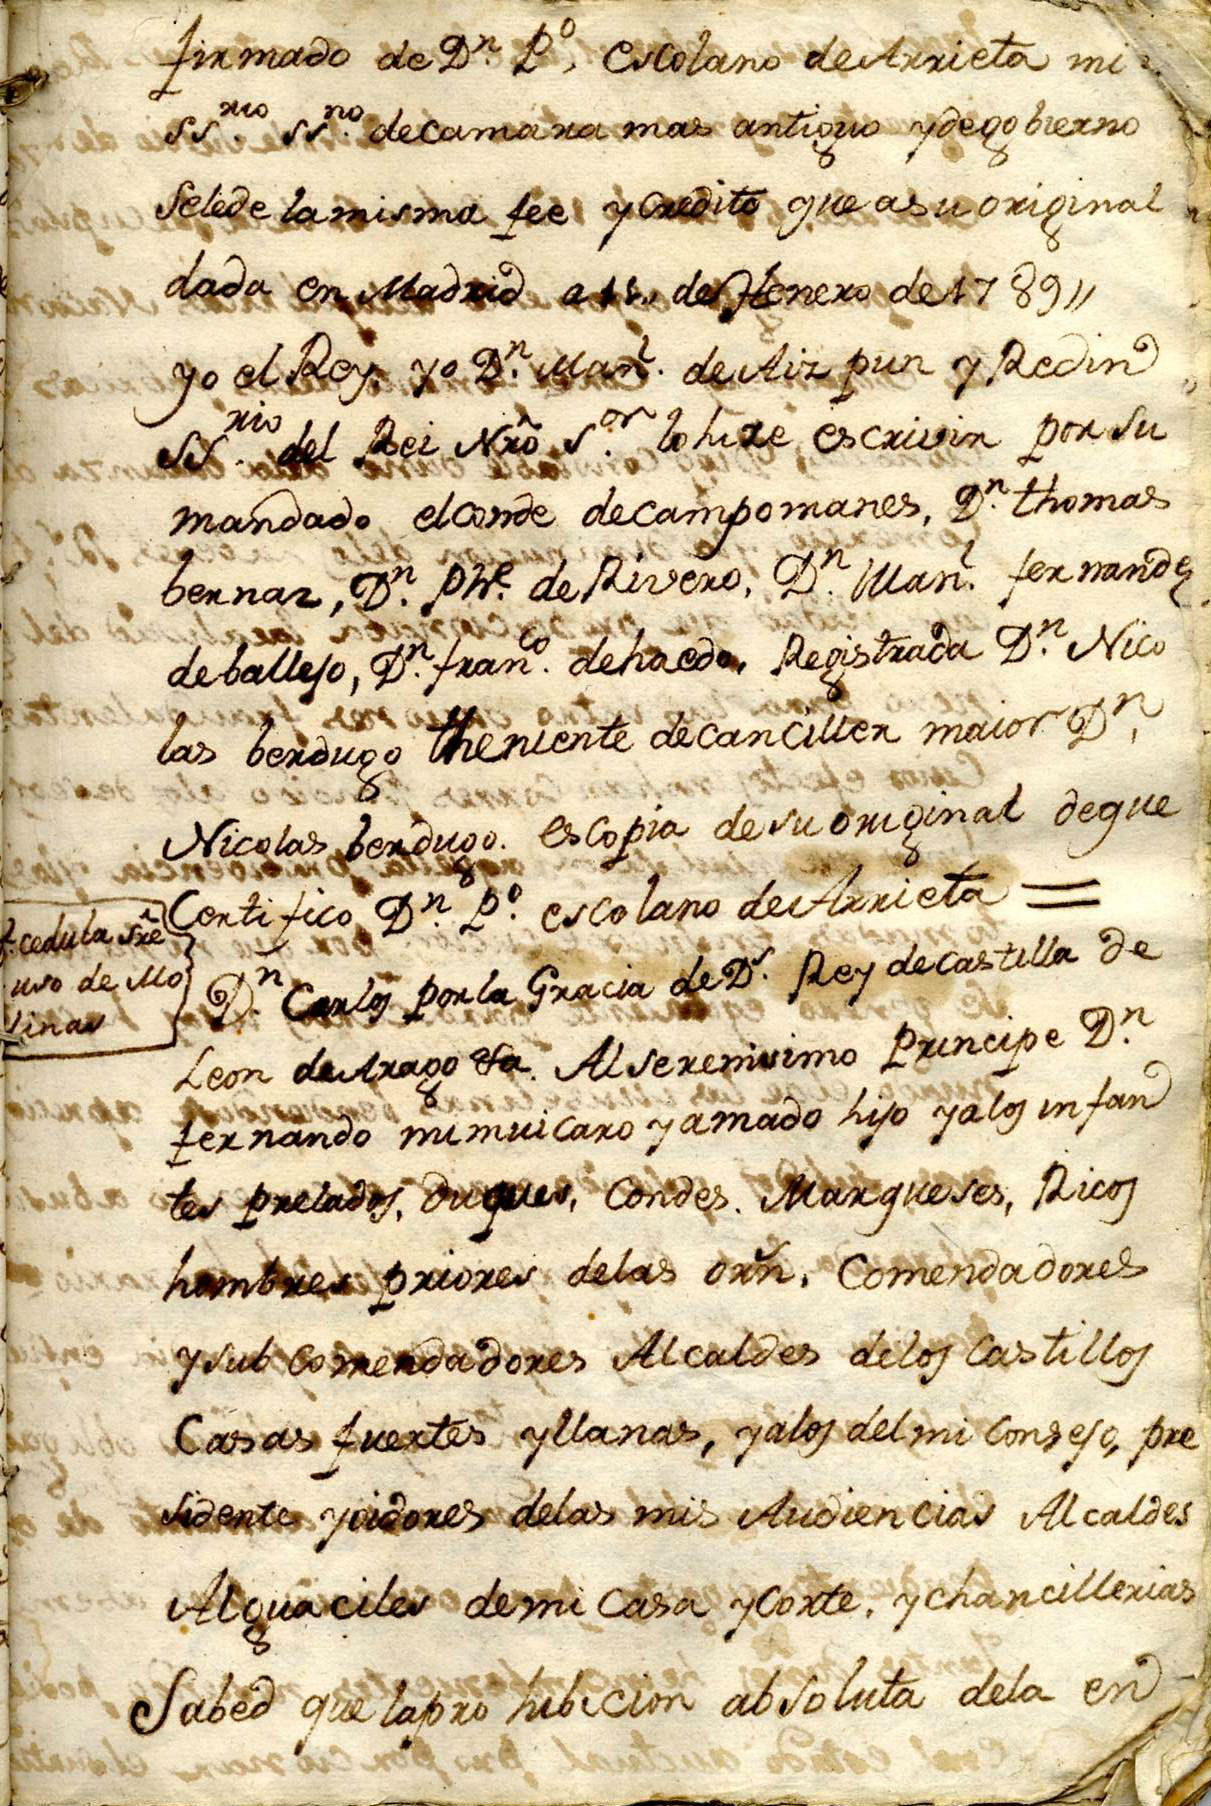 firmado de Dn. Po. Escolano de Arrieta mi
SSrio. ssno. de camara mas antiguo y de gobierno
se le de la misma fee y credito que a su original
dada en Madrid a 11. de Henero de 1789,,
yo el Rey. yo Dn. Manl. de Aiz pun y Redin
SSrio. del Rei Nrõ Sor. lo hize escrivir por su
mandado el conde de campomanes, Dn. thomas
bernar, Dn. Phe. de Rivero, Dn. Manl. fernandez
de ballejo, Dn. franco. de haedo. Registrada Dn. Nico
las berdugo theniente de canciller maior Dn.
Nicolas berdugo. es copia de su original de que
Certifico Dn. Po. escolano de Arrieta =
cedula srẽ
uso de Mo
linas
Dn. Carlos por la Gracia de Ds. Rey de castilla de
Leon de Arago &a. Al serenisimo Principe Dn.
fernando mi mui caro y amado hijo y a los infan
tes prelados, duques, Condes. Marqueses, Ricos
hombres priores de las orñ. Comendadores
y sub comendadores Alcaldes de los Castillos
Casas fuertes y llanas, y a los del mi consejo, pre
sidente y oidores de las mis Audiencias Alcaldes
Alguaciles de mi Casa y Corte. y chancillerias
Sabed que la pro hibicion absoluta de la en